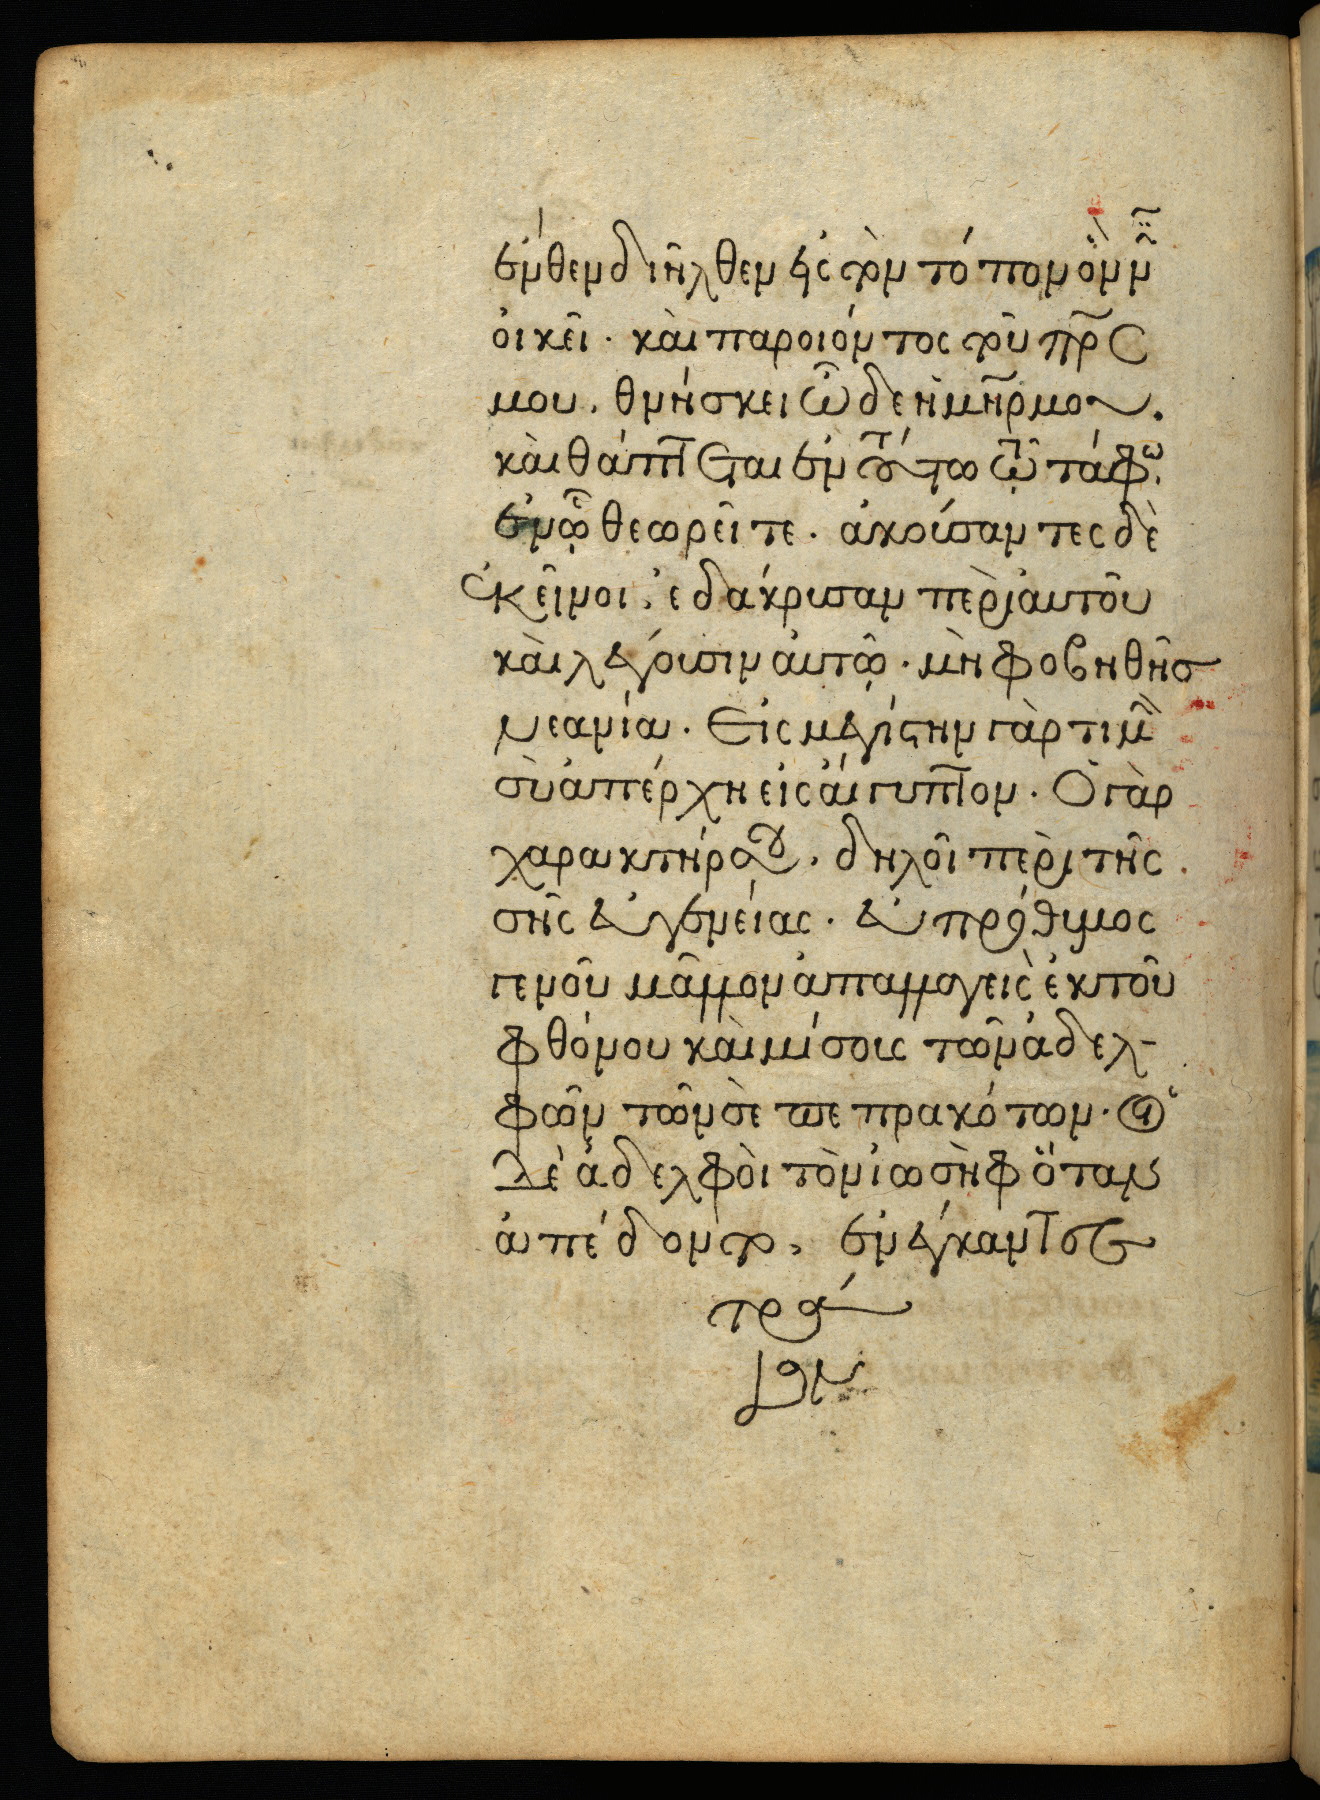 ἔνθεν διῆλθεν εἰς τὸν τόπον ὃν νῦν
οἰκεῖ. καὶ παροιόντος τοῦ πρς
μου, θνήσκει ὧδε ἡ μηρ μου.
καὶ θάπτεται ἐν τούτω τῶ τάφω,
ἐν ᾧ θεωρεῖτε. ἀκούσαντες δὲ
ἐκεῖνοι, ἐδάκρυσαν περὶ αυτοῦ
καὶ λέγουσιν αυτῷ. μὴ φοβηθῆς
νεανία. Εἰς μεγίστην γὰρ τιμὴν
σὺ ἀπέρχη εἰς ἀίγυπτον. Ὁ γὰρ
χαρακτήρ σου, δηλοῖ περὶ τῆς
σῆς εὐγενείας. εὐπρόθυμος
γενοῦ μᾶλλον ἀπαλλαγεὶς ἐκ τοῦ
φθόνου καὶ μίσους τῶν ἀδελ-
φῶν τῶν σὲ πεπρακότων. οἱ
δὲ ἀδελφοὶ τὸν ἰωσὴφ ὅταν
ἀπέδοντο, ἐνέγκαντες
τρά
γον